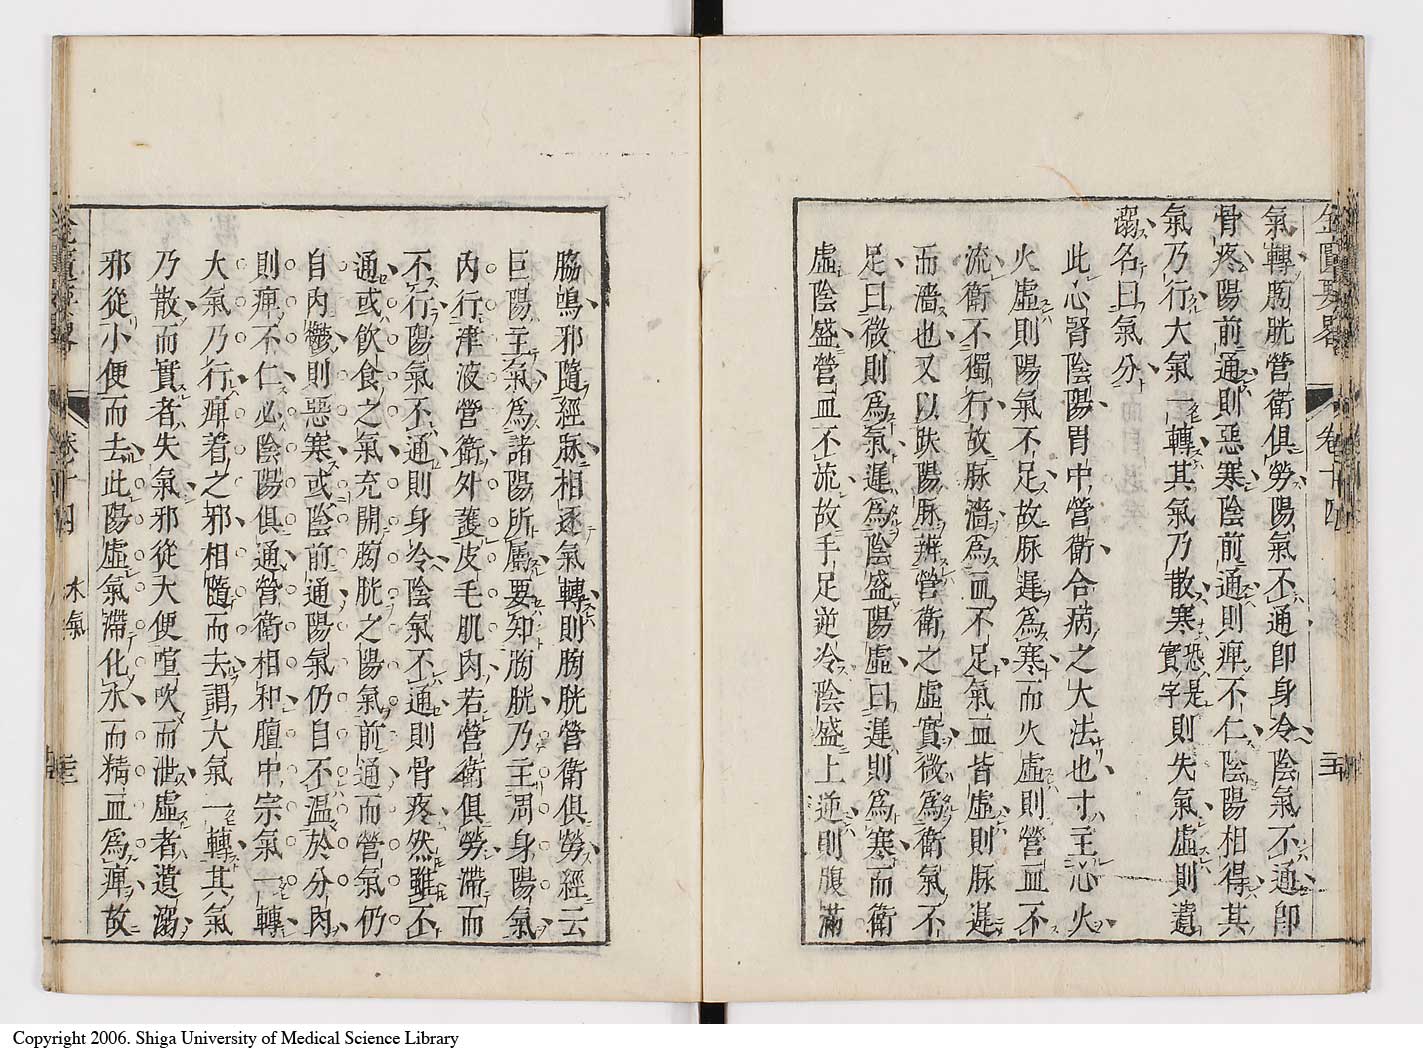 氣轉膀胱營衛俱勞陽氣不通卽身冷陰氣不通卽
骨疼陽前通則惡寒陰前通則痺不仁陰陽相得其
氣乃行大氣一轉其氣乃散寒恐是實字則失氣虛則遺
溺名曰氣分
此心腎陰陽胃中營衛合病之大法也寸主心火
火虛則陽氣不足故脉遲爲寒而火虛則營血不
流衛不獨行故脉濇爲血不足氣血皆虛則脉遲
而濇也又以趺陽脉辨營衛之虛實微爲衛氣不
足曰微則爲氣遲爲陰盛陽虛曰遲則爲寒而衛
虛陰盛營血不流故手足逆冷陰盛上逆則腹滿
脇鳴邪隨經脉相逐氣轉則膀胱營衛俱勞經云
巨陽主氣爲諸陽所屬要知膀胱乃主周身陽氣
內行津液營衛外護皮毛肌肉若營衛俱勞滯而
不行陽氣不通則身冷陰氣不通則骨疼然雖不
通或飲食之氣充開膀胱之陽氣前通而營氣仍
自內鬱則惡寒或陰前通陽氣仍自不溫於分肉
則痺不仁必陰陽俱通營衛相和膻中宗氣一轉
大氣乃行痺着之邪相隨而去謂大氣一轉其氣
乃散而實者失氣邪從大便喧吹而泄虛者遺溺
邪從小便而去此陽虛氣滯化水而精血爲痺故
卷十四
水氣
Copyright 2006. Shiga University of Medical Science Library